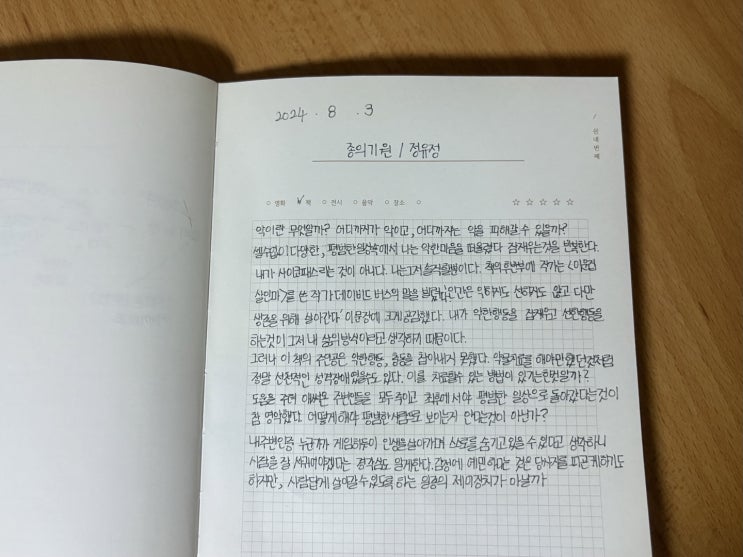 2024 . 8 . 3
쉰네번째
종의기원 / 정유정
영화 책 전시 음악 장소
악이란 무엇일까? 어디까지가 악이고, 어디까지는 악을 피해갈 수 있을까?
셀수없이 다양한, 평범한 일상속에서 나는 악한마음을 떠올렸다 잠재우는것을 반복한다.
내가 사이코패스라는 것이 아니다. 나는 그저 책의 후반부에 작가는 <이웃집
살인마>를 쓴 작가 데이비드 버스의 말을 빌렸다. 인간은 악하지도 선하지도 않고 다만
생존을 위해 살아간다 이 문장에 크게 공감했다. 내가 악한행동을 잠재우고 선한행동을
하는것이 그저 내 삶의 방식이라고 생각하기 때문이다.
그러나 이 책의 주인공은 악한행동, 충동을 참아내지 못했다. 약물치료를 해야만 했던것처럼
정말 선천적인 성격장애 있을수도 있다. 이를 치료할수 있는 방법이 있기는한것일까?
도움을 주려 애써온 주변인들을 모두 죽이고 최후에서야 평범한 일상으로 돌아갔다는것이
참 영악했다 어떻게해야 평범한 사람으로 보이는지 안다는것이 아닌가?
내 주변인중 누군가가 인생을 살아가며 스스로를 숨기고 있을 수 있다고 생각하니
사람을 잘 사귀어야겠다는 경각심도 일게한다. 감정에 예민하다는 것은 당사자를 피곤케하기도
하지만, 사람답게 살아갈 수 있도록 하는 일종의 제어장치가 아닐까